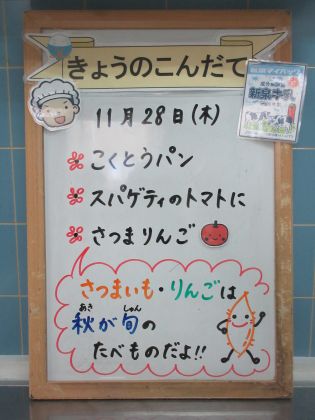 きょうのこんだて
11月28日(木)
こくとうパン
スパゲティのトマトに
さつまりんご
さつまいも・りんごは
秋が旬の
あき しゅん
たべものだよ!!